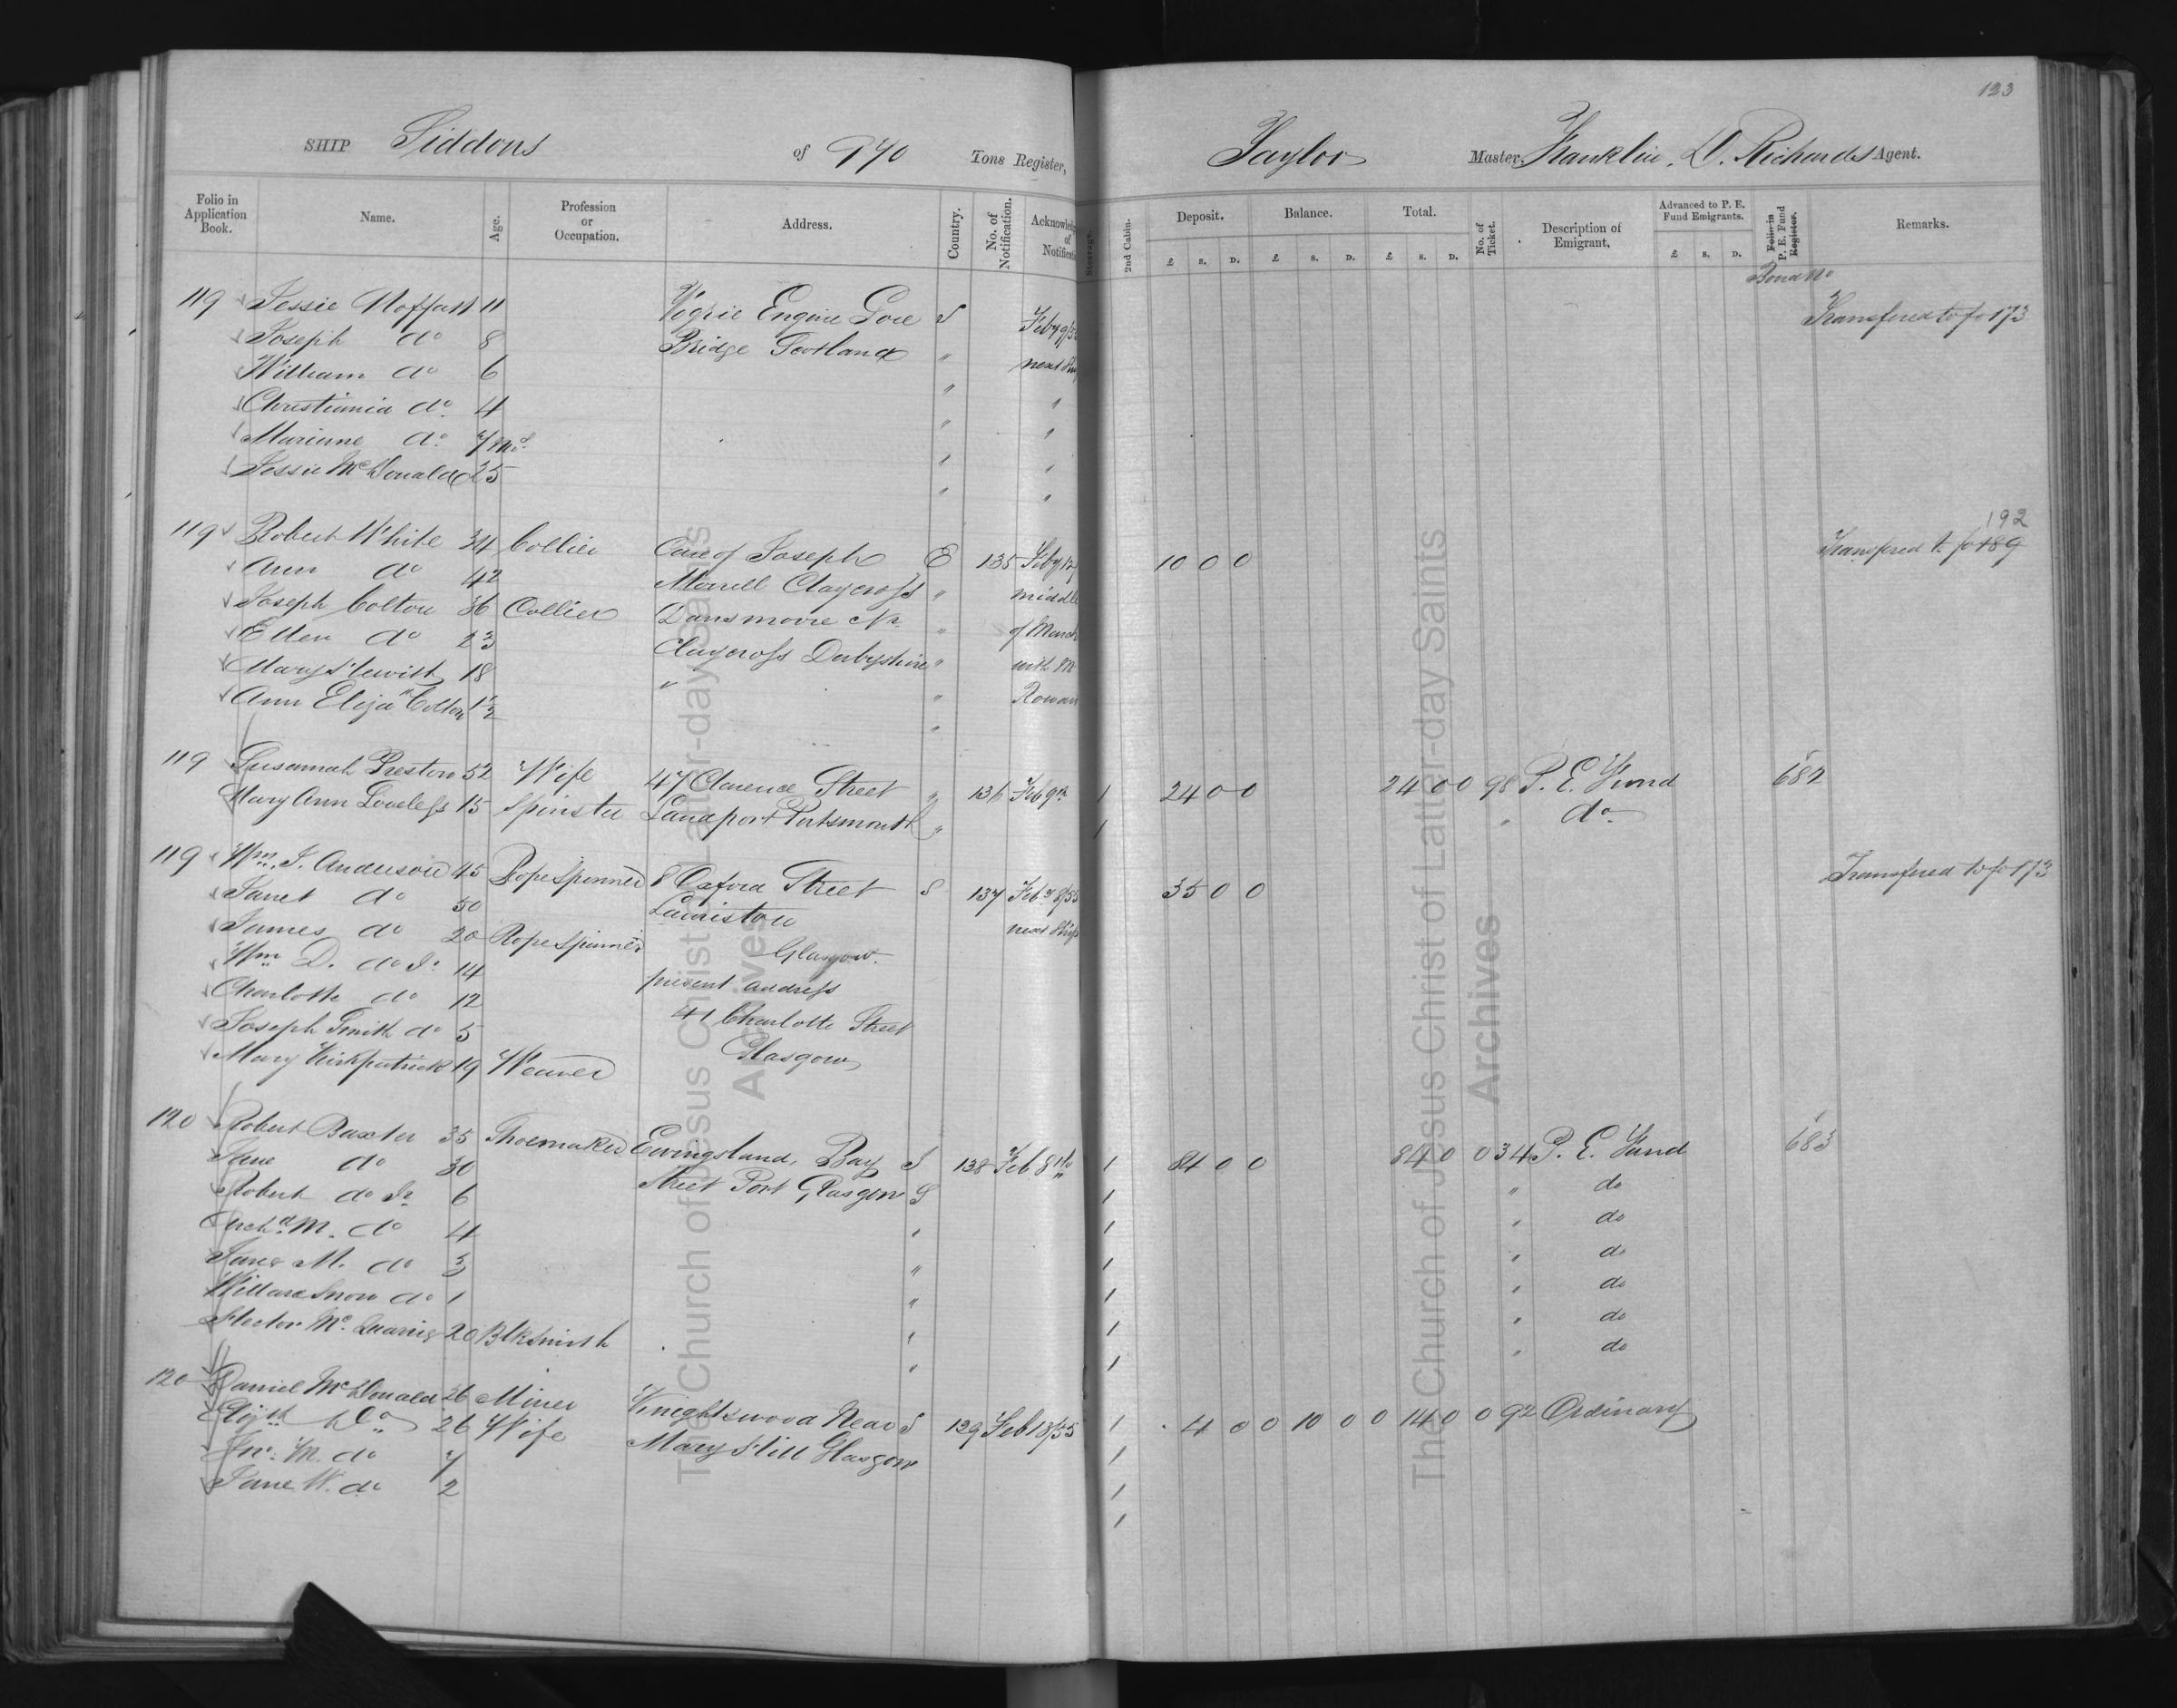 123
SHIP Siddons of 970 Tons Register, Taylor Master, Franklin. D. Richards Agent.
Folio in Application Book. Name. Age. Profession or Occupation. Address. Country. No. of Notification. Steerage. 2nd Cabin. Deposit. Balance. Total. No. of Ticket. Description of Emigrant. Advanced to P. E. Fund Emigrants. Folio in P. E. Fund Register. Remarks.
£ S. D. £ S. D. £ S. D. £ S. D.
Bond No
119 Jessie Moffatt 11 Engine S Feby 9/55 Transfered to fo 173
Joseph do 8 Bridge Scotland " next Ship
William do 6 " "
Christiania do. 4 " "
Marianne do. 7 mos. " "
Jessie McDonald 25 " "
192
119 Robert White 34 Collier Care of Joseph E 135 Feby 12 10 0 0 Transfered to fo 189
Ann do 42 Morrell Claycross " middle
Joseph Colton 36 Collier Dansmoore Nr " of March
Ellen do 23 Claycross Derbyshire " with
Mary Hewitt 18 " " Rowan
Ann Eliza Colton 1½ "
119 Susannah Preston 52 Wife 47 Clarence Street " 136 Feb 9th 1 24 0 0 24 0 0 98 P. E. Fund 682
Mary Ann Loveless 15 Spinster Landport Portsmouth " 1 " do
119 Wm. J. Anderson 45 Rope Spinner 8 Oxford Street S 137 Feby 8/55 35 0 0 Transfered to fo 173
Janet do 50 Lauriston next Ship
James do 20 Rope Spinner Glasgow.
Wm D. do Jr 14 present address
Charlotte do 12 41 Charlotte Street
Joseph Smith do 5 Glasgow
Mary Kirkpatrick 19 Weaver
120 Robert Baxter 35 Shoemaker Ewingsland, Bay S 138 Feb 8th 1 84 0 0 84 0 0 34 P. E. Fund 683
Jane do 30 Street Port Glasgow S 1 " do
Robert do Jr 6 " 1 " do
Archd M. do 4 " 1 " do
Jane M. do 3 " 1 " do
Willard Snow do 1 " 1 " do
Hector Mc 20 Blksmith " 1 " do
120 Daniel McDonald 26 Miner Knightswood Near S 139 Feb 13/55 1 4 0 0 10 0 0 14 0 0 92 Ordinary
Elizth do 26 Wife Mary Hill Glasgow 1
Jno. M. do 7 1
Jane W. do 2 1
The Church of Jesus Christ of Latter-day Saints
Archives
The Church of Jesus Christ of Latter-day Saints
Archives